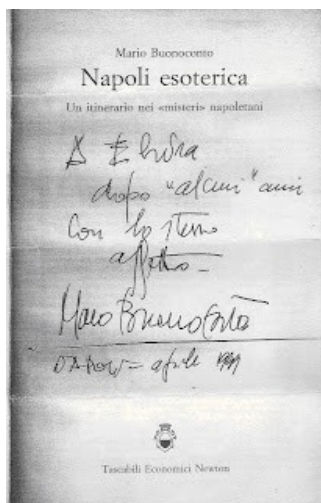 Mario Buonoconto
Napoli esoterica
Un itinerario nei «misteri» napoletani
A
dopo "alcuni" anni
con lo stesso
affetto
Mario Buonoconto
Napoli – aprile
Tascabili Economici Newton